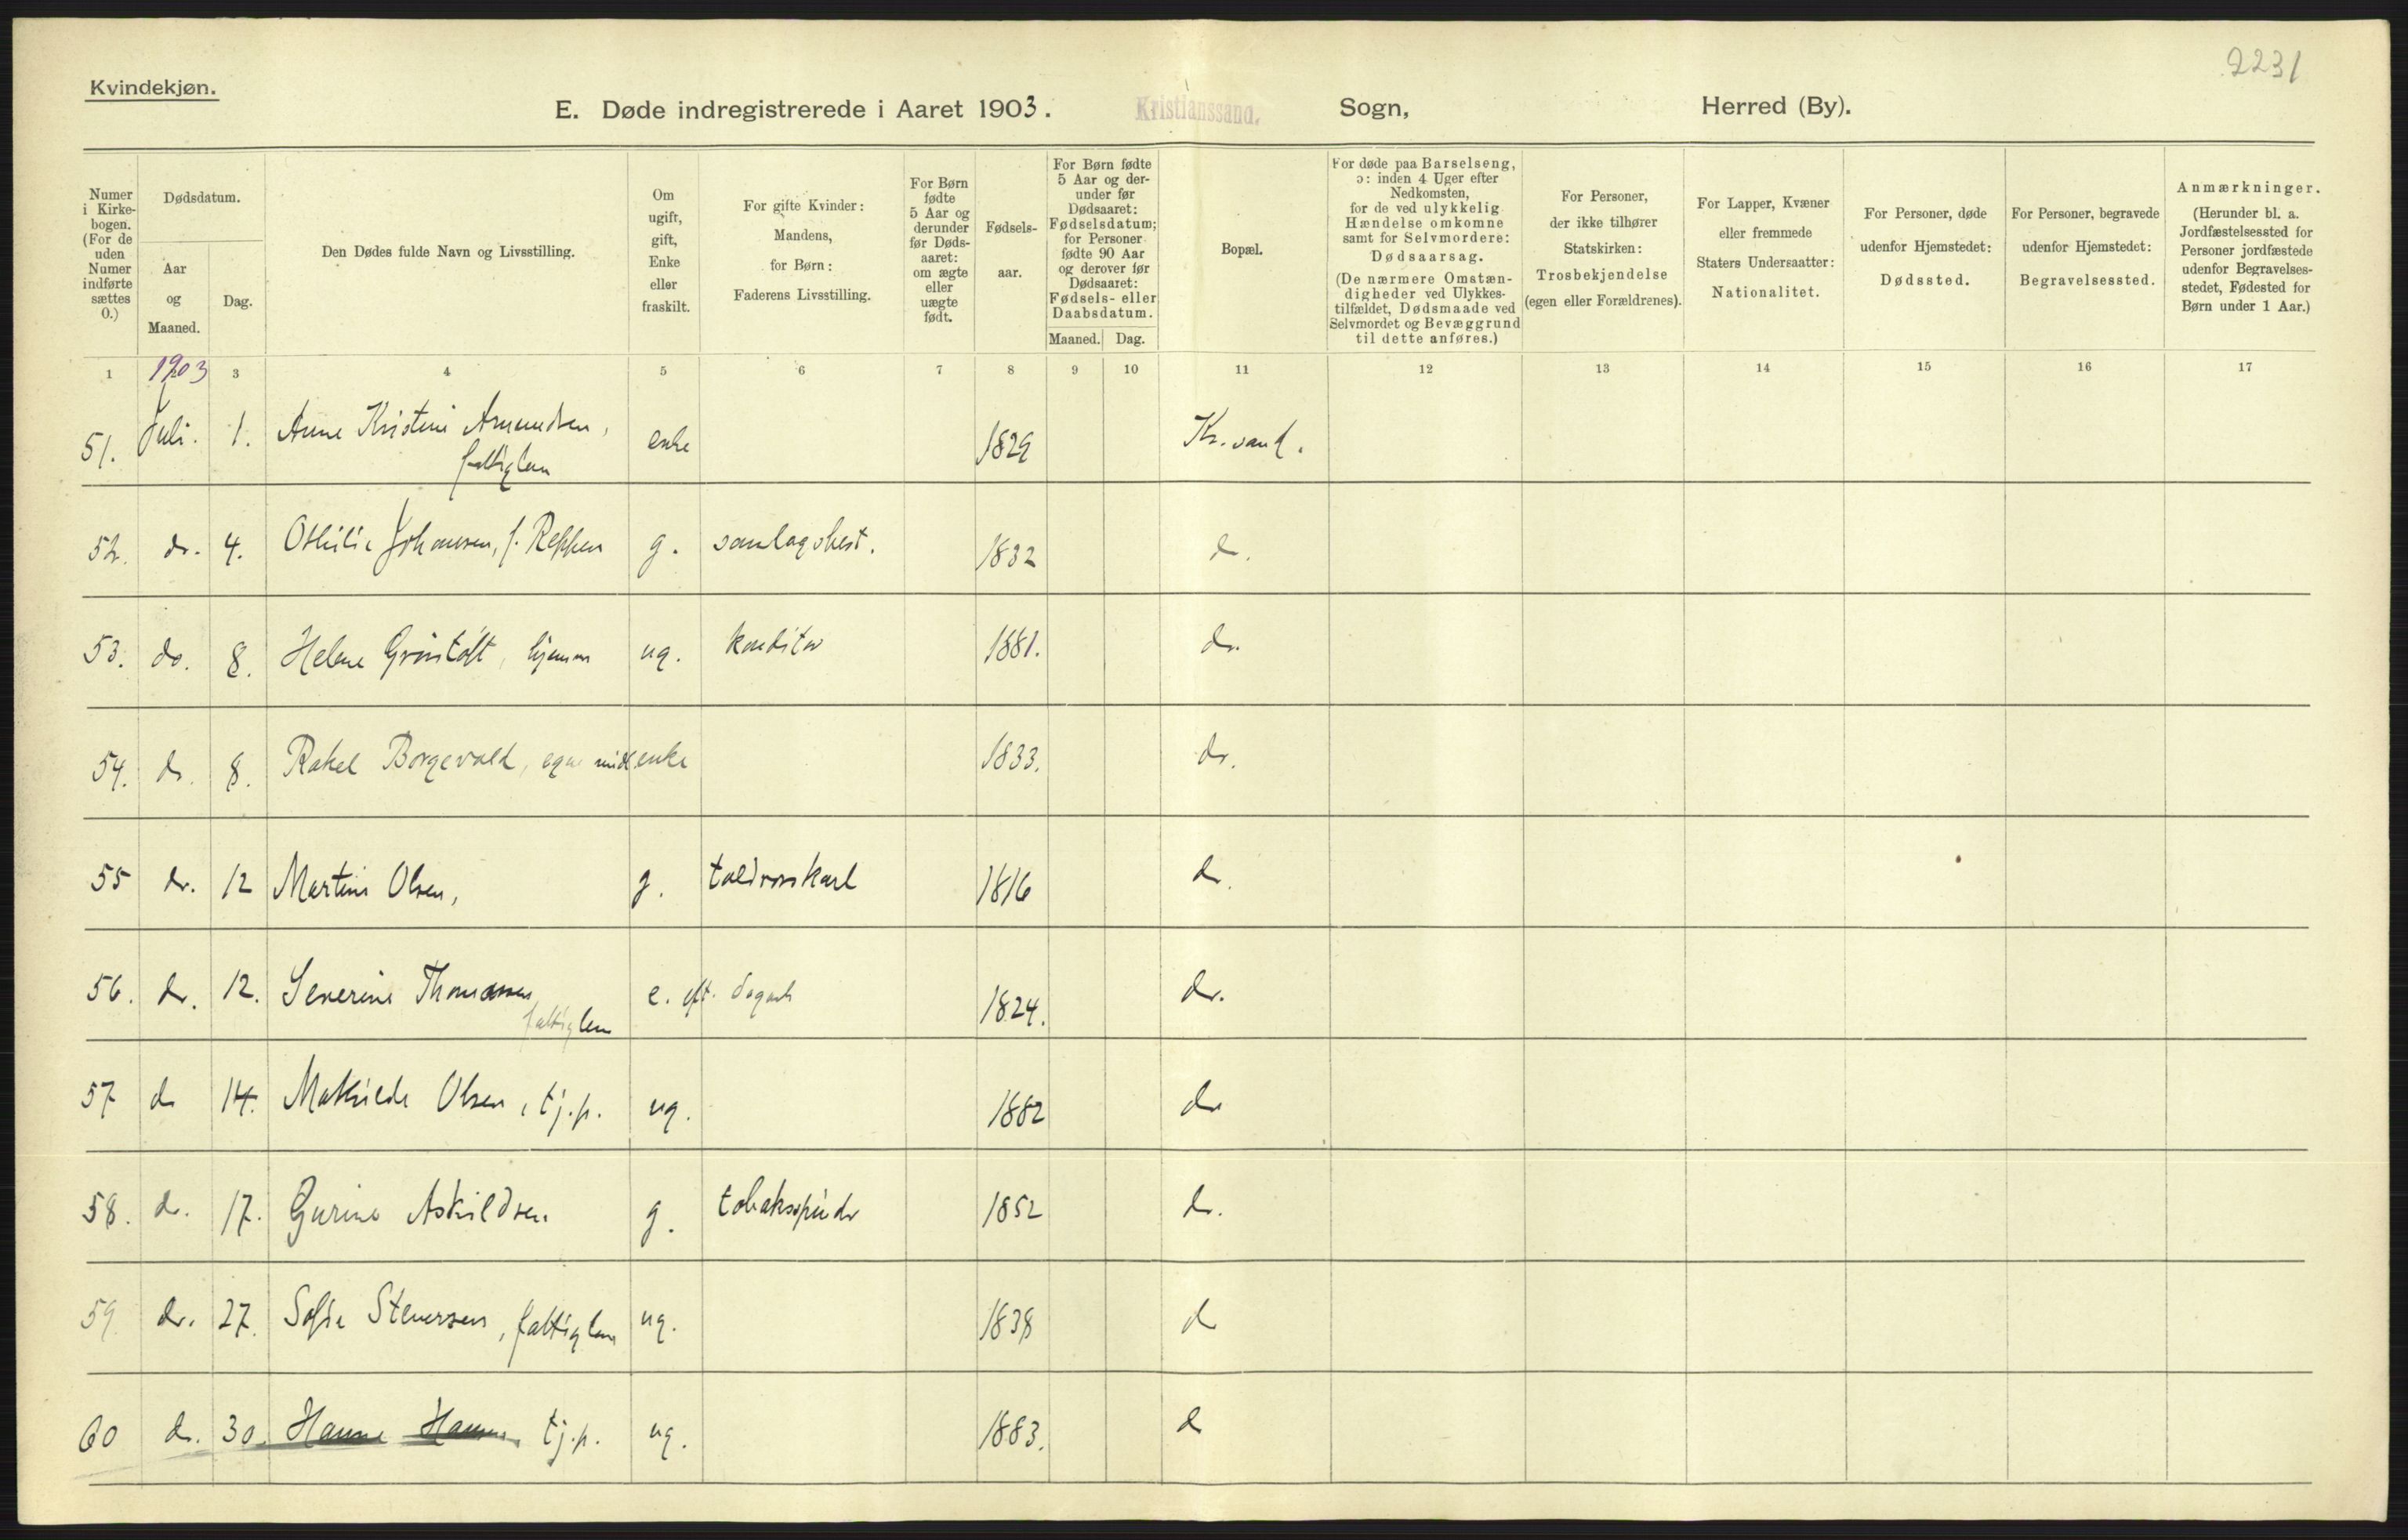 2231
Kvindekjøn.
E. Døde indregistrerede i Aaret 1903. Kristianssand. Sogn, Herred (By).
Numer i Kirkebogen. (For de uden Numer indførte sættes 0.)
Dødsdatum.
Aar og Maaned.
Dag.
Den Dødes fulde Navn og Livsstilling.
Om ugift, gift, Enke eller fraskilt.
For gifte Kvinder: Mandens, for Børn: Faderens Livsstilling.
For Børn fødte 5 Aar og derunder før Dødsaaret: om ægte eller uægte født.
Fødselsaar.
For Børn fødte 5 Aar og derunder før Dødsaaret: Fødselsdatum; for Personer fødte 90 Aar og derover før Dødsaaret: Fødsels- eller Daabsdatum.
Maaned. Dag.
Bopæl.
For døde paa Barselseng, ɔ: inden 4 Uger efter Nedkomsten, for de ved ulykkelig Hændelse omkomne samt for Selvmordere: Dødsaarsag. (De nærmere Omstændigheder ved Ulykkestilfældet, Dødsmaade ved Selvmordet og Bevæggrund til dette anføres.)
For Personer, der ikke tilhører Statskirken: Trosbekjendelse (egen eller Forældrenes).
For Lapper, Kvæner eller fremmede Staters Undersaatter: Nationalitet.
For Personer, døde udenfor Hjemstedet: Dødssted.
For Personer, begravede udenfor Hjemstedet: Begravelsessted.
Anmærkninger. (Herunder bl. a. Jordfæstelsessted for Personer jordfæstede udenfor Begravelsesstedet, Fødested for Børn under 1 Aar.)
1 1903 3 4 5 6 7 8 9 10 11 12 13 14 15 16 17
51. Juli. 1. Anne Kristine Amundsen, enke 1829 Kr.sand.
fattiglem
52. do. 4. Othilie Johansen, f. Reppen g. samlagsbest. 1832 do.
53. do. 8. Helene Grøntoft, hjemme ug. konditor 1881. do.
54. do. 8. Rakel Borgevold, egne midl. enke 1833. do.
55 do. 12 Martine Olsen, g. toldrorskarl 1816 do.
56. do. 12. Severine Thomassen e. eft. dagarb 1824. do.
fattiglem
57 do 14. Mathilde Olsen, tj.p. ug. 1882 do
58. do. 17. Gurine Askildsen g. tobaksspinder 1852 do.
59. do. 27. Sofie Stenersen, fattiglem ug. 1838 do
60 do. 30. Hanne Hansen, tj.p. ug. 1883. do